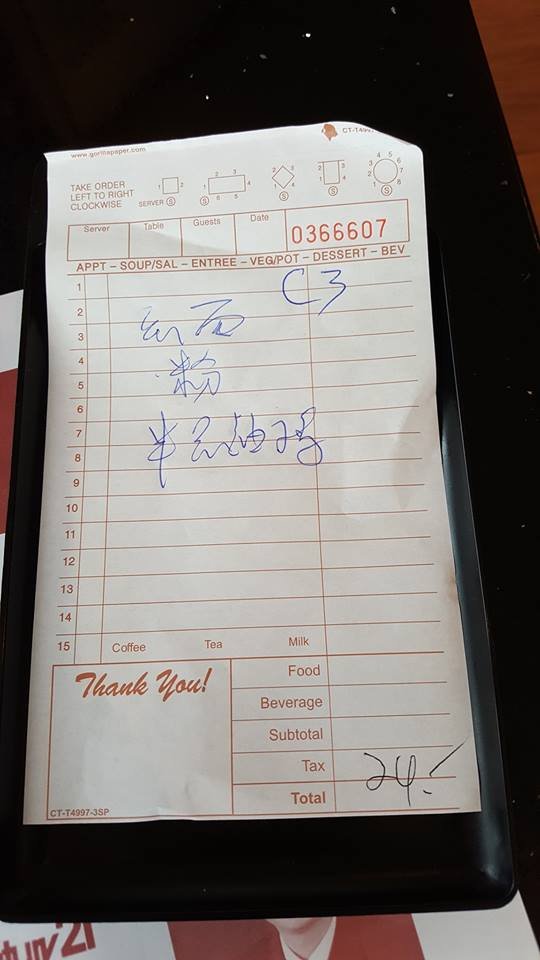 www.gorillapaper.com
TAKE ORDER
LEFT TO RIGHT
CLOCKWISE
SERVER Ⓢ
Server Table Guests Date 0366607
APPT – SOUP/SAL – ENTREE – VEG/POT – DESSERT – BEV
1
C3
2
3
4
粉
5
6
7
半只油鸡
8
9
10
11
12
13
14
15 Coffee Tea Milk
Thank You!
Food
Beverage
Subtotal
Tax
24.-
Total
CT-T4997-3SP
tury 21